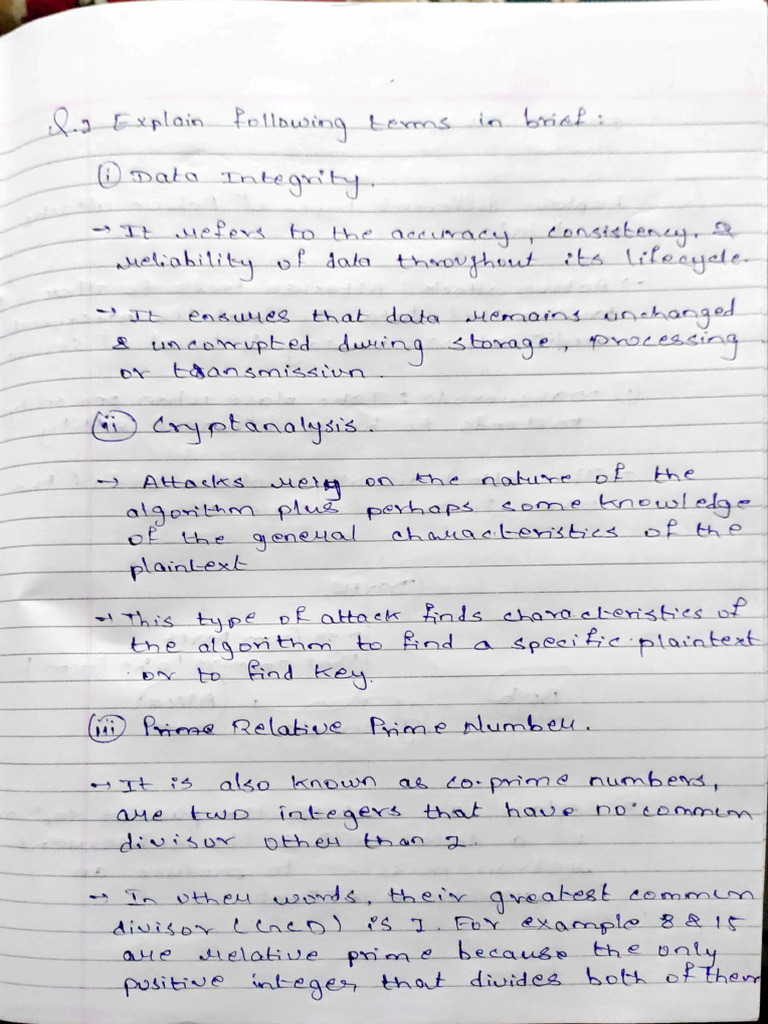 Q.2 Explain following terms in brief:
(i) Data Integrity.
→ It refers to the accuracy, consistency, &
reliability of data throughout its lifecycle.
→ It ensures that data remains unchanged
& uncorrupted during storage, processing
or transmission.
(ii) Cryptanalysis.
→ Attacks rely on the nature of the
algorithm plus perhaps some knowledge
of the general characteristics of the
plaintext
→ This type of attack finds characteristics of
the algorithm to find a specific plaintext
or to find key.
(iii) Prime Relative Prime Number.
→ It is also known as co-prime numbers,
are two integers that have no common
divisor other than 1.
→ In other words, their greatest common
divisor (GCD) is 1. For example 8 & 15
are relative prime because the only
positive integer that divides both of them